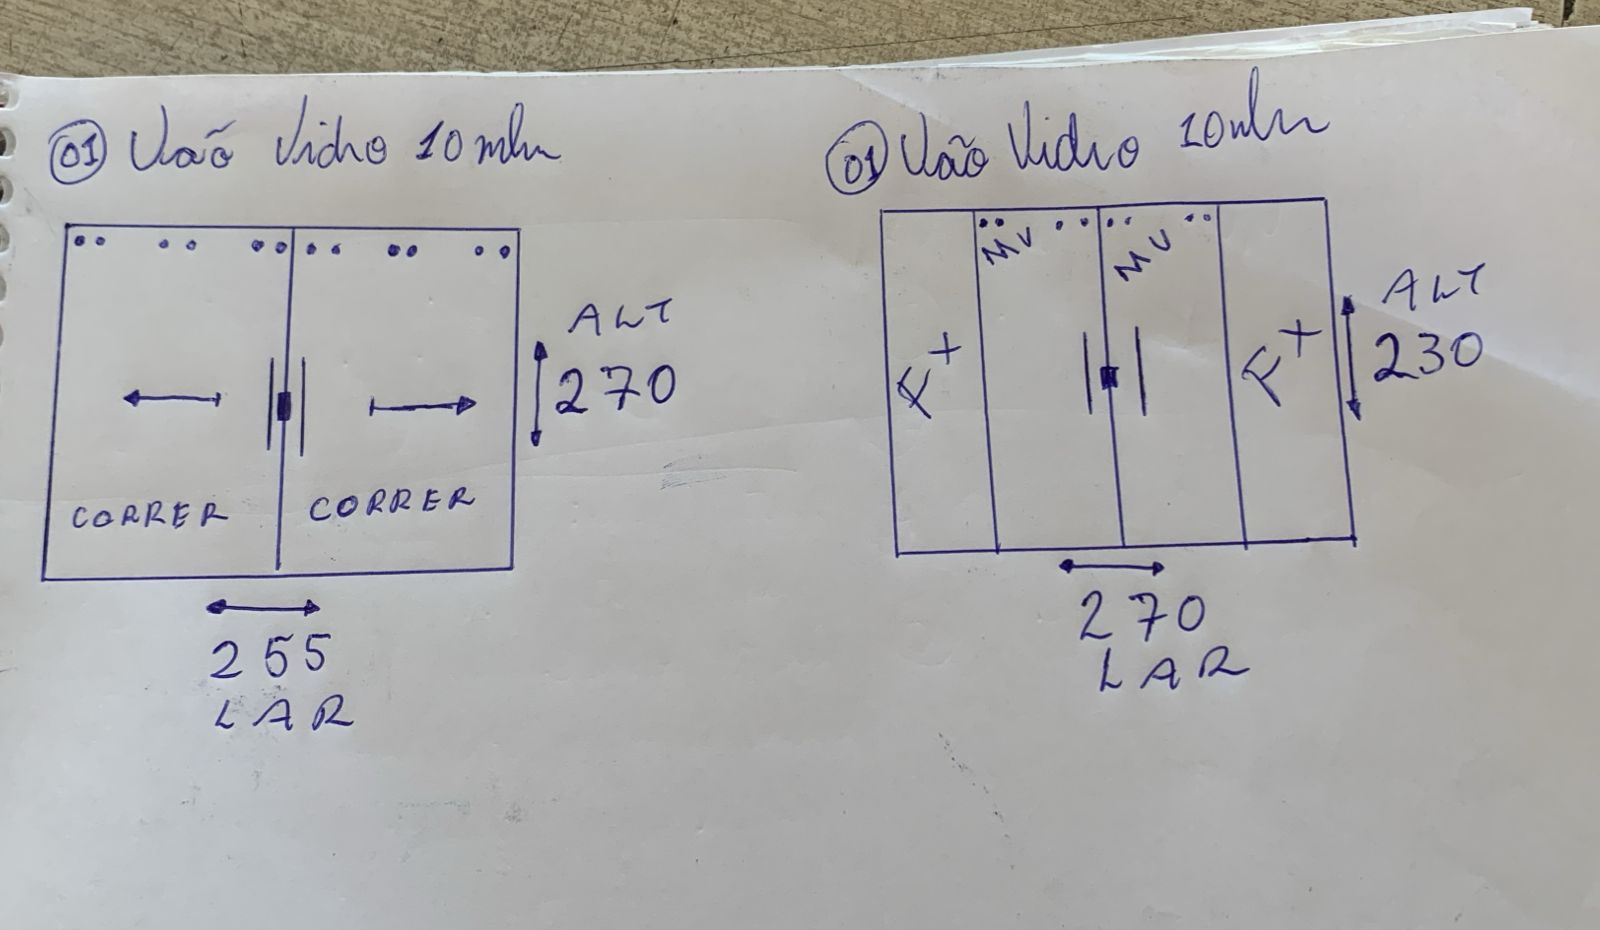 01 Vão Vidro 10 mm
ALT
270
CORRER CORRER
255
LAR
01 Vão Vidro 10 mm
MV MV
FX FX
ALT
230
270
LAR